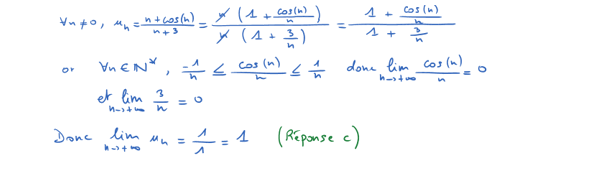 ∀n≠0, u_n = (n+cos(n))/(n+3) = (n(1 + cos(n)/n))/(n(1 + 3/n)) = (1 + cos(n)/n)/(1 + 3/n)
or ∀n∈ℕ*, -1/n ≤ cos(n)/n ≤ 1/n donc lim_{n→+∞} cos(n)/n = 0
et lim_{n→+∞} 3/n = 0
Donc lim_{n→+∞} u_n = 1/1 = 1 (Réponse c)